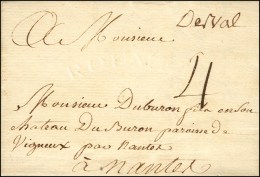 Derval
A Monsieur
4
Monsieur Duburon en son
chateau Du Buron paroisse de
Vigneux par Nantes
à Nantes